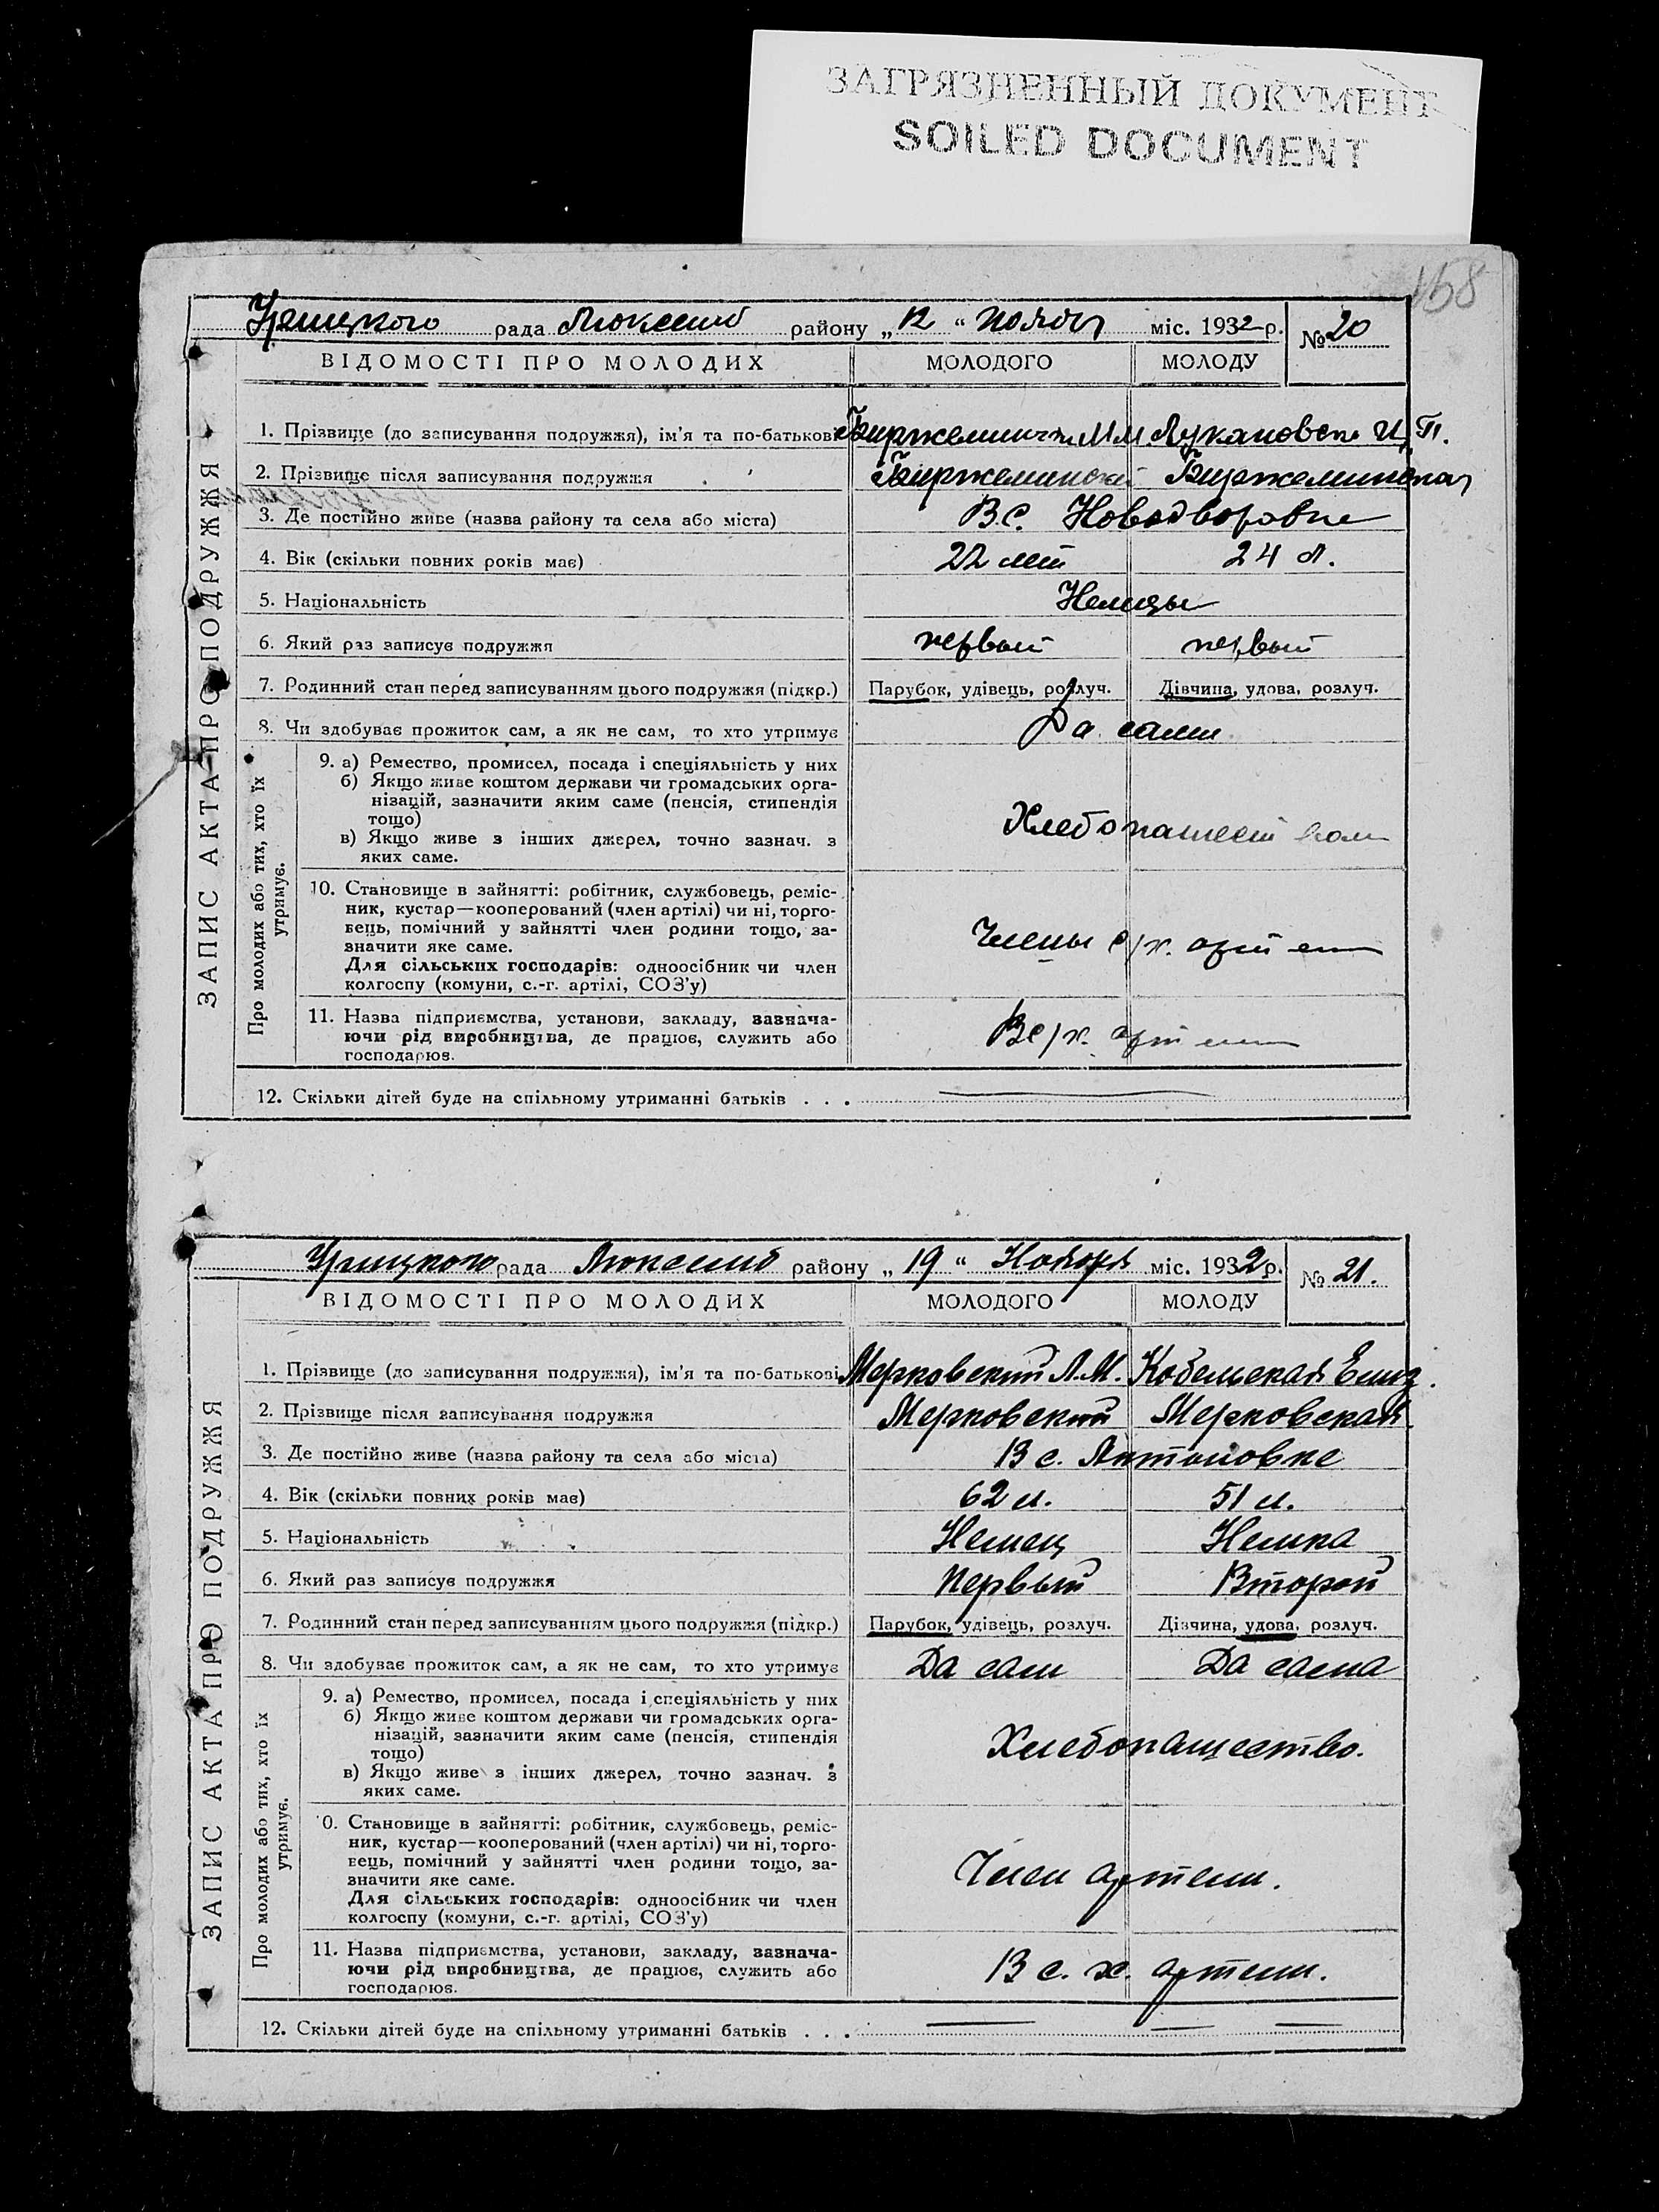 ЗАГРЯЗНЕННЫЙ ДОКУМЕНТ
SOILED DOCUMENT
158
рада района „12“ міс. 1932 р. № 20
ВІДОМОСТІ ПРО МОЛОДИХ МОЛОДОГО МОЛОДУ
ЗАПИС АКТА ПРО ПОДРУЖЖЯ
1. Прізвище (до записування подружжя), ім'я та по-батькові
2. Прізвище після записування подружжя
3. Де постійно живе (назва району та села або міста) В с.
4. Вік (скільки повних років має) 22 лет 24 л.
5. Національність Немцы
6. Який раз записує подружжя первый первый
7. Родинний стан перед записуванням цього подружжя (підкр.) Парубок, удівець, розлуч. Дівчина, удова, розлуч.
8. Чи здобуває прожиток сам, а як не сам, то хто утримує Да сами
Про молодих або тих, хто їх утримує.
9. а) Ремество, промисел, посада і спеціяльність у них
б) Якщо живе коштом держави чи громадських орга-
нізацій, зазначити яким саме (пенсія, стипендія
тощо)
в) Якщо живе з інших джерел, точно зазнач. з
яких саме.
10. Становище в зайнятті: робітник, службовець, реміс-
ник, кустар—кооперований (член артілі) чи ні, торго-
вець, помічний у зайнятті член родини тощо, за-
значити яке саме.
Для сільських господарів: одноосібник чи член
колгоспу (комуни, с.-г. артілі, СОЗ'у)
Члены с/х. артели
11. Назва підприємства, установи, закладу, зазнача-
ючи рід виробництва, де працює, служить або
господарює.
В с/х. артели
12. Скільки дітей буде на спільному утриманні батьків . . .
рада району „19“ Ноября міс. 1932 р. № 21.
ВІДОМОСТІ ПРО МОЛОДИХ МОЛОДОГО МОЛОДУ
ЗАПИС АКТА ПРО ПОДРУЖЖЯ
1. Прізвище (до записування подружжя), ім'я та по-батькові Мерковский Л.М. Кобельская Елиз.
2. Прізвище після записування подружжя Мерковский Мерковская
3. Де постійно живе (назва району та села або міста) В с. Антоновке
4. Вік (скільки повних років має) 62 л. 51 л.
5. Національність Немец Немка
6. Який раз записує подружжя первый Второй
7. Родинний стан перед записуванням цього подружжя (підкр.) Парубок, удівець, розлуч. Дівчина, удова, розлуч.
8. Чи здобуває прожиток сам, а як не сам, то хто утримує Да сам Да сама
Про молодих або тих, хто їх утримує.
9. а) Ремество, промисел, посада і спеціяльність у них
б) Якщо живе коштом держави чи громадських орга-
нізацій, зазначити яким саме (пенсія, стипендія
тощо)
в) Якщо живе з інших джерел, точно зазнач. з
яких саме.
Хлебопашество.
0. Становище в зайнятті: робітник, службовець, реміс-
ник, кустар—кооперований (член артілі) чи ні, торго-
вець, помічний у зайнятті член родини тощо, за-
значити яке саме.
Для сільських господарів: одноосібник чи член
колгоспу (комуни, с.-г. артілі, СОЗ'у)
Член артели.
11. Назва підприємства, установи, закладу, зазнача-
ючи рід виробництва, де працює, служить або
господарює.
В с. х. артели.
12. Скільки дітей буде на спільному утриманні батьків . . .